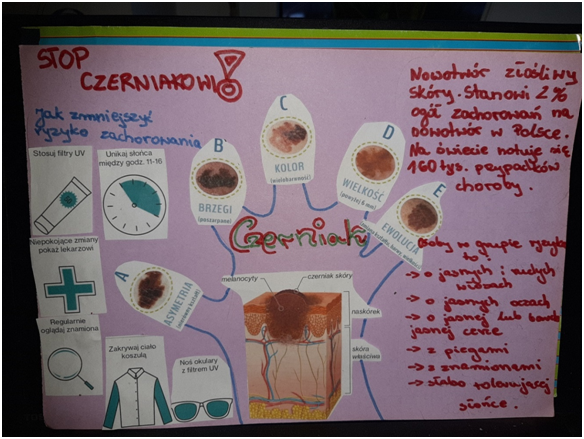 STOP
CZERNIAKOWI!
Jak zmniejszyć
ryzyko zachorowania
Stosuj filtry UV
Unikaj słońca
między godz. 11-16
Niepokojące zmiany
pokaż lekarzowi
Regularnie
oglądaj znamiona
Zakrywaj ciało
koszulą
Noś okulary
z filtrem UV
A
ASYMETRIA
B
BRZEGI
(poszarpane)
C
KOLOR
(wielobarwność)
D
WIELKOŚĆ
(powyżej 6 mm)
E
EWOLUCJA
Czerniak
melanocyty
czerniak skóry
naskórek
skóra
właściwa
Nowotwór złośliwy
skóry. Stanowi 2%
ogół zachorowań na
nowotwór w Polsce.
Na świecie notuje się
160 tys. przypadków
choroby.
Osoby w grupie ryzyka
to
→ o jasnych i rudych
włosach
→ o jasnych oczach
→ o jasnej lub bardzo
jasnej cerze
→ z piegami
→ z znamionami
→ słabo tolerującej
słońce.